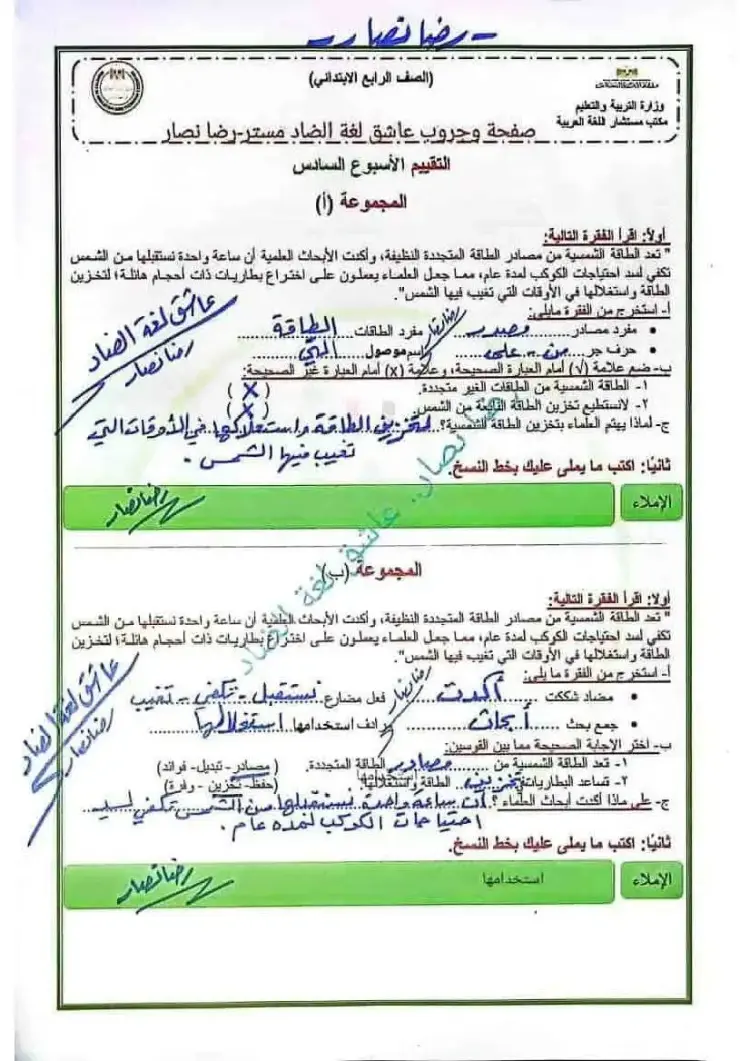 - رضا نصار -
(الصف الرابع الابتدائي)
وزارة التربية والتعليم
مكتب مستشار اللغة العربية
صفحة وجروب عاشق لغة الضاد مستر-رضا نصار
التقييم الأسبوع السادس
المجموعة (أ)
أولاً: اقرأ الفقرة التالية:
" تعد الطاقة الشمسية من مصادر الطاقة المتجددة النظيفة، وأكدت الأبحاث العلمية أن ساعة واحدة نستقبلها من الشمس
تكفي لسد احتياجات الكوكب لمدة عام، مما جعل العلماء يعملون على اختراع بطاريات ذات أحجام هائلة؛ لتخزين
الطاقة واستغلالها في الأوقات التي تغيب فيها الشمس".
أ- استخرج من الفقرة مايلي:
• مفرد مصادر ..... مصدر ..... مفرد الطاقات ..... الطاقة .....
• حرف جر ..... من - على ..... اسم موصول ..... التي .....
رضا نصار
عاشق لغة الضاد
رضا نصار
ب- ضع علامة (√) أمام العبارة الصحيحة، وعلامة (x) أمام العبارة غير الصحيحة:
١- الطاقة الشمسية من الطاقات الغير متجددة. ( X )
٢- لانستطيع تخزين الطاقة النابعة من الشمس. ( X )
ج- لماذا يهتم العلماء بتخزين الطاقة الشمسية؟ لتخزين الطاقة واستغلالها في الأوقات التي
تغيب فيها الشمس .
ثانيًا: اكتب ما يملى عليك بخط النسخ.
الإملاء
رضا نصار
رضا نصار.. عاشق لغة الضاد
المجموعة (ب)
أولا: اقرأ الفقرة التالية:
" تعد الطاقة الشمسية من مصادر الطاقة المتجددة النظيفة، وأكدت الأبحاث العلمية أن ساعة واحدة نستقبلها من الشمس
تكفي لسد احتياجات الكوكب لمدة عام، مما جعل العلماء يعملون على اختراع بطاريات ذات أحجام هائلة؛ لتخزين
الطاقة واستغلالها في الأوقات التي تغيب فيها الشمس".
أ- استخرج من الفقرة ما يلي:
• مضاد شككت ..... أكدت ..... فعل مضارع نستقبل - تكفي - تغيب
• جمع بحث ..... أبحاث ..... مرادف استخدامها ..... استغلالها .....
رضا نصار
عاشق لغة الضاد
رضا نصار
ب- اختر الإجابة الصحيحة مما بين القوسين:
١- تعد الطاقة الشمسية من ..... مصادر ..... الطاقة المتجددة. (مصادر- تبديل- فوائد)
٢- تساعد البطاريات تخزين الطاقة واستغلالها. (حفظ- تخزين - وفرة)
استخدامها
ج- على ماذا أكدت أبحاث العلماء ؟ أن ساعة واحدة نستقبلها من الشمس تكفي لسد
احتياجات الكوكب لمدة عام .
ثانيًا: اكتب ما يملى عليك بخط النسخ.
الإملاء
استخدامها
رضا نصار